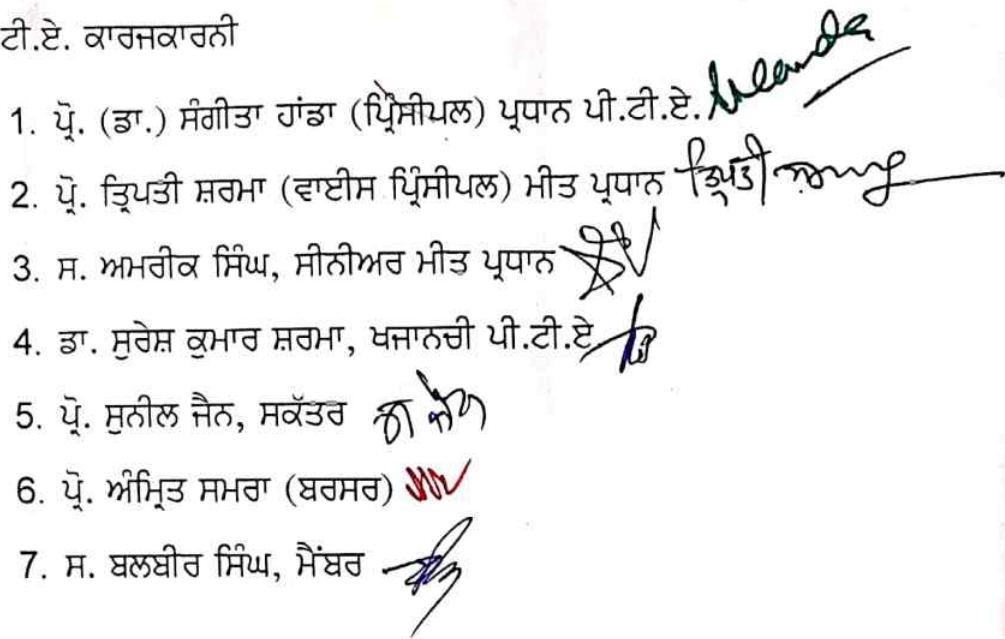 ਟੀ.ਏ. ਕਾਰਜਕਾਰਨੀ
1. ਪ੍ਰੋ. (ਡਾ.) ਸੰਗੀਤਾ ਹਾਂਡਾ (ਪ੍ਰਿੰਸੀਪਲ) ਪ੍ਰਧਾਨ ਪੀ.ਟੀ.ਏ.
2. ਪ੍ਰੋ. ਤ੍ਰਿਪਤੀ ਸ਼ਰਮਾ (ਵਾਈਸ ਪ੍ਰਿੰਸੀਪਲ) ਮੀਤ ਪ੍ਰਧਾਨ ਤ੍ਰਿਪਤੀ
3. ਸ. ਅਮਰੀਕ ਸਿੰਘ, ਸੀਨੀਅਰ ਮੀਤ ਪ੍ਰਧਾਨ
4. ਡਾ. ਸੁਰੇਸ਼ ਕੁਮਾਰ ਸ਼ਰਮਾ, ਖਜਾਨਚੀ ਪੀ.ਟੀ.ਏ
5. ਪ੍ਰੋ. ਸੁਨੀਲ ਜੈਨ, ਸਕੱਤਰ
6. ਪ੍ਰੋ. ਅੰਮ੍ਰਿਤ ਸਮਰਾ (ਬਰਸਰ)
7. ਸ. ਬਲਬੀਰ ਸਿੰਘ, ਮੈਂਬਰ